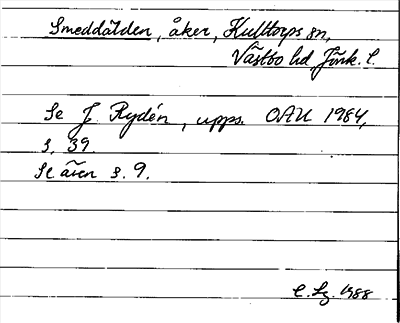 Smeddalden, åker, Kulltorps sn,
Västbo hd, Jönk. l.
Se J. Rydén, upps. OAU 1984,
s. 39.
Se även s. 9.
1988